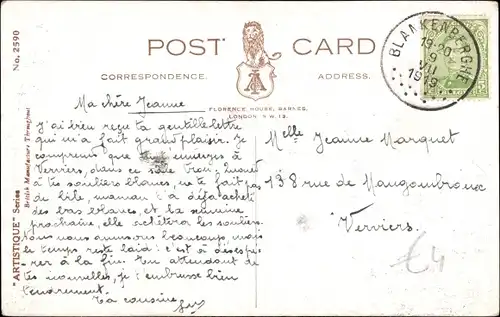 POST CARD
CORRESPONDENCE.
ADDRESS.
FLORENCE HOUSE, BARNES,
LONDON S.W. 13.
BLANKENBERGHE
19-20
9
VII
1919
"ARTISTIQUE" Series
British Manufacture Throughout
No. 2590
Ma chère Jeanne
J'ai bien reçu ta gentille lettre
qui m'a fait grand plaisir. Je
comprends que tu
Verviers, dans ce
à tes souliers blancs, ne te fait pas
de bile, maman t'a déjà acheté
des bas blancs, et la semaine
prochaine, elle achètera les souliers.
Nous nous amusons beaucoup mais
le temps reste laid: c'est à désespé-
rer à la fin. En attendant de
tes nouvelles, je t'embrasse bien
tendrement.
Ta cousine
Melle Jeanne Marquet
138 rue de Mangombroux
Verviers.
€4